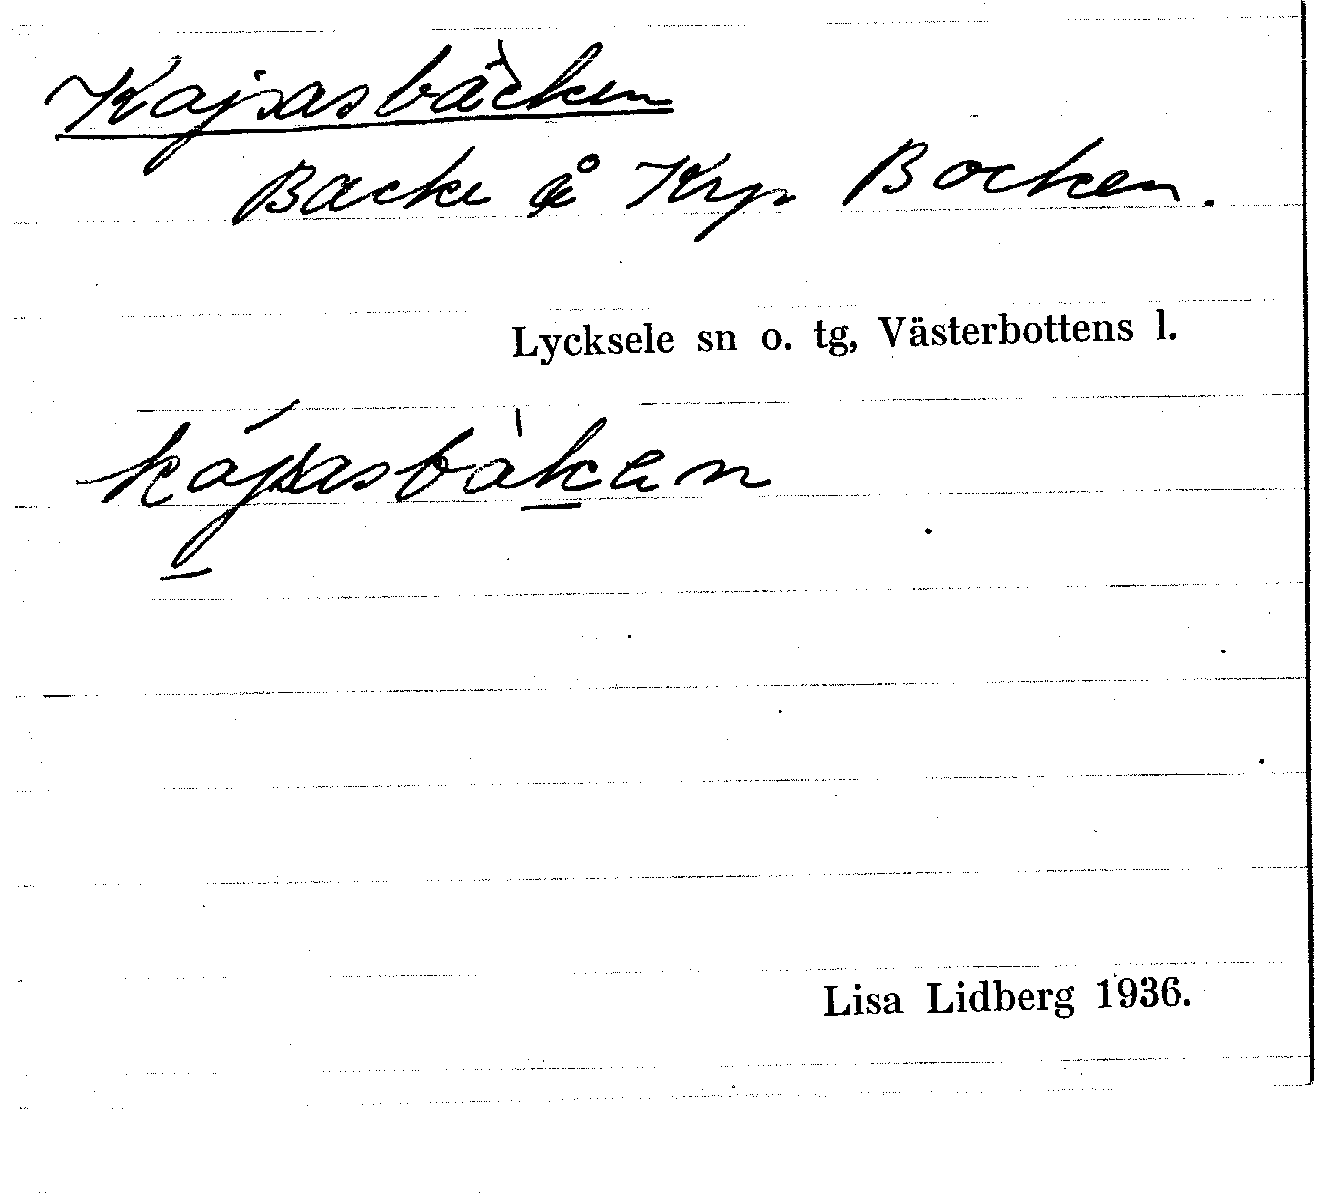 Kajsasbäcken
Backe å Krp Bocken.
Lycksele sn o. tg, Västerbottens l.
kájsasbàken
Lisa Lidberg 1936.